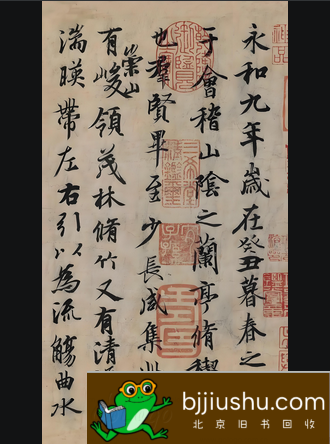 永和九年歲在癸丑暮春之
于會稽山陰之蘭亭脩禊
也群賢畢至少長咸集此
崇山
有峻領茂林脩竹又有清
湍暎帶左右引以為流觴曲水
bjjiushu.com
北京旧书回收